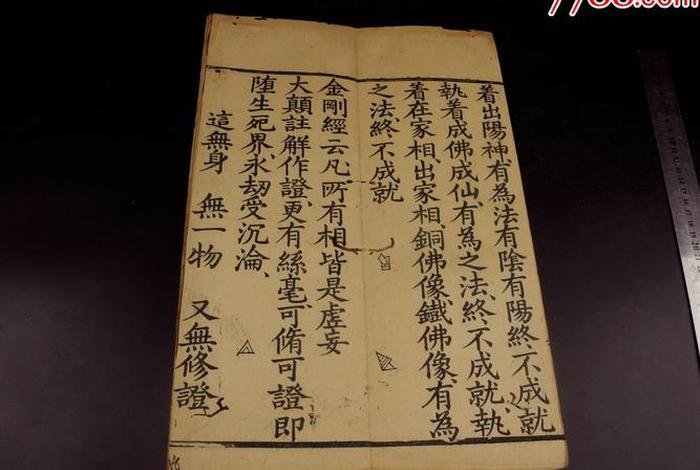 着出陽神有為法有陰有陽終不成就
執着成佛成仙有為之法終不成就執
着在家相出家相銅佛像鐵佛像有為
之法終不成就
金剛經云凡所有相皆是虛妄
大顛註解作證更有絲毫可脩可證即
堕生死界永劫受沉淪
這無身 無一物 又無修證